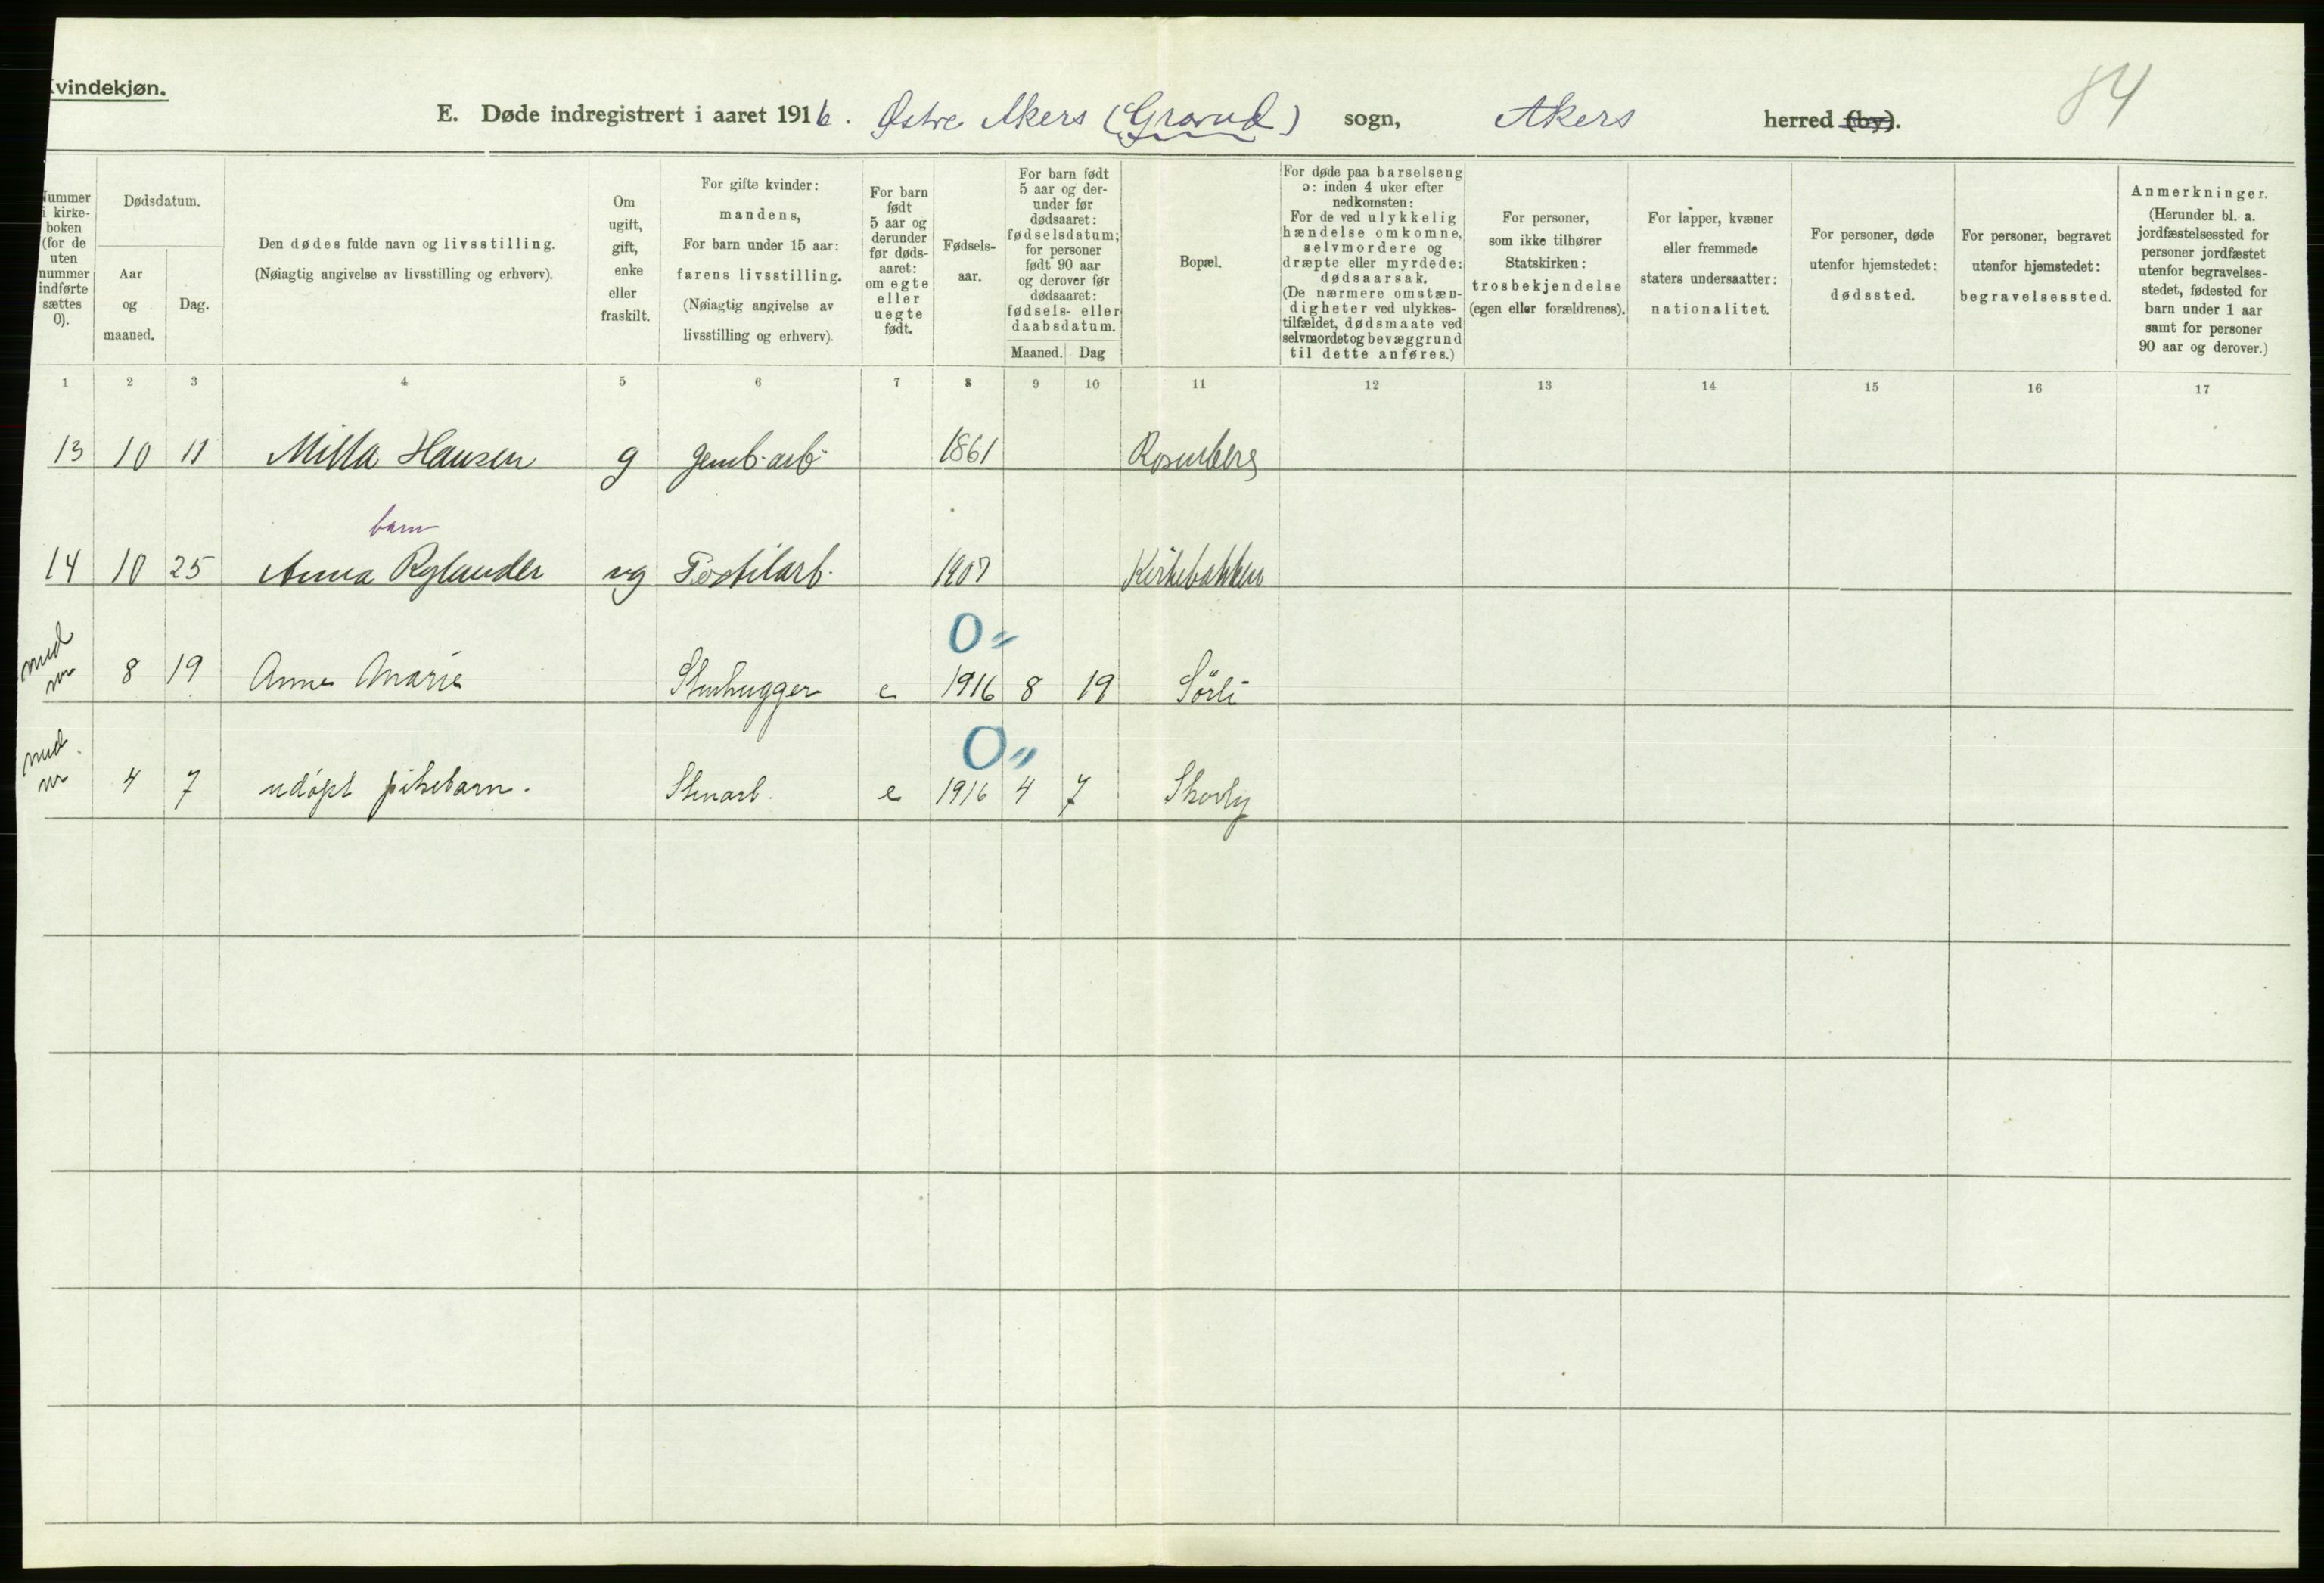 Kvindekjøn.
E. Døde indregistrert i aaret 1916. Østre Akers (Grorud) sogn, Akers herred (by).
84
Nummer i kirke-boken (for de uten nummer indførte sættes 0).
Dødsdatum.
Aar og maaned.
Dag.
Den dødes fulde navn og livsstilling.
(Nøiagtig angivelse av livsstilling og erhverv).
Om ugift, gift, enke eller fraskilt.
For gifte kvinder: mandens,
For barn under 15 aar: farens livsstilling.
(Nøiagtig angivelse av livsstilling og erhverv).
For barn født 5 aar og derunder før døds-aaret: om egte eller uegte født.
Fødsels-aar.
For barn født 5 aar og der-under før dødsaaret: fødselsdatum; for personer født 90 aar og derover før dødsaaret: fødsels- eller daabsdatum.
Maaned. Dag
Bopæl.
For døde paa barselseng ɔ: inden 4 uker efter nedkomsten:
For de ved ulykkelig hændelse omkomne, selvmordere og dræpte eller myrdede: dødsaarsak.
(De nærmere omstæn-digheter ved ulykkes-tilfældet, dødsmaate ved selvmordet og bevæggrund til dette anføres.)
For personer, som ikke tilhører Statskirken: trosbekjendelse (egen eller forældrenes).
For lapper, kvæner eller fremmede staters undersaatter: nationalitet.
For personer, døde utenfor hjemstedet: dødssted.
For personer, begravet utenfor hjemstedet: begravelsessted.
Anmerkninger.
(Herunder bl. a. jordfæstelsessted for personer jordfæstet utenfor begravelses-stedet, fødested for barn under 1 aar samt for personer 90 aar og derover.)
1 2 3 4 5 6 7 8 9 10 11 12 13 14 15 16 17
13 10 11 Milla Hansen g Jernb. arb. 1861 Rosenberg
barn
14 10 25 Anna Rylander ug Textilarb. 1907 Kirkebakken
0 "
8 19 Anna Marie Stenhugger e 1916 8 19 Sörli
0 "
4 7 udøpt pikebarn. Stenarb. e 1916 4 7 Skovly